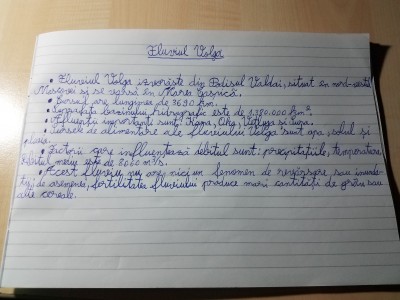 Fluviul Volga
• Fluviul Volga izvorăște din Podișul Valdai, situat în nord-vestul
Moscovei și se varsă în Marea Caspică.
• Cursul are lungirea de 3690 km.
• Suprafața bazinului hidrografic este de 1.380.000 km²
• Afluenții importanți sunt: Kama, Oka, Vetluga și Sura.
• Sursele de alimentare ale fluviului Volga sunt apa, solul și
• Factorii care influențează debitul sunt: precipitațiile, temperatura.
debitul mediu este de 8060 m³/s.
• Acest fluviu nu are nici un fenomen de revărsare sau inunda-
ții de asemenea, fertilitatea fluviului produce mari cantități de grâne sau
alte cereale.